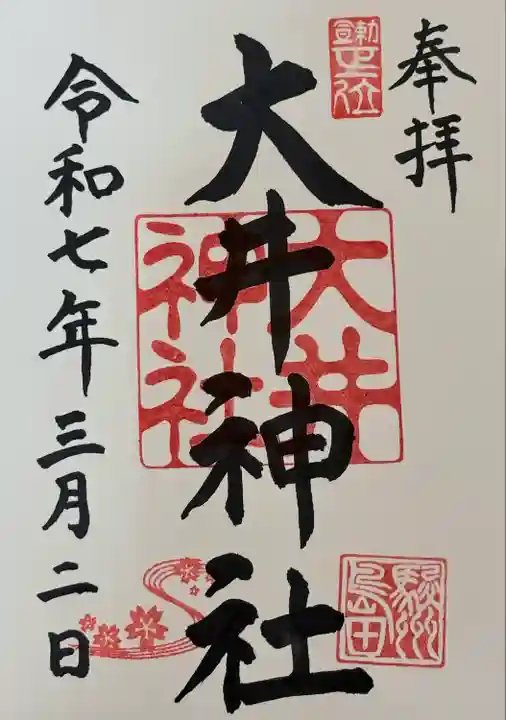 奉拝
勅宣正一位
大井神社
大井神社
駿州
島田
令和七年三月二日